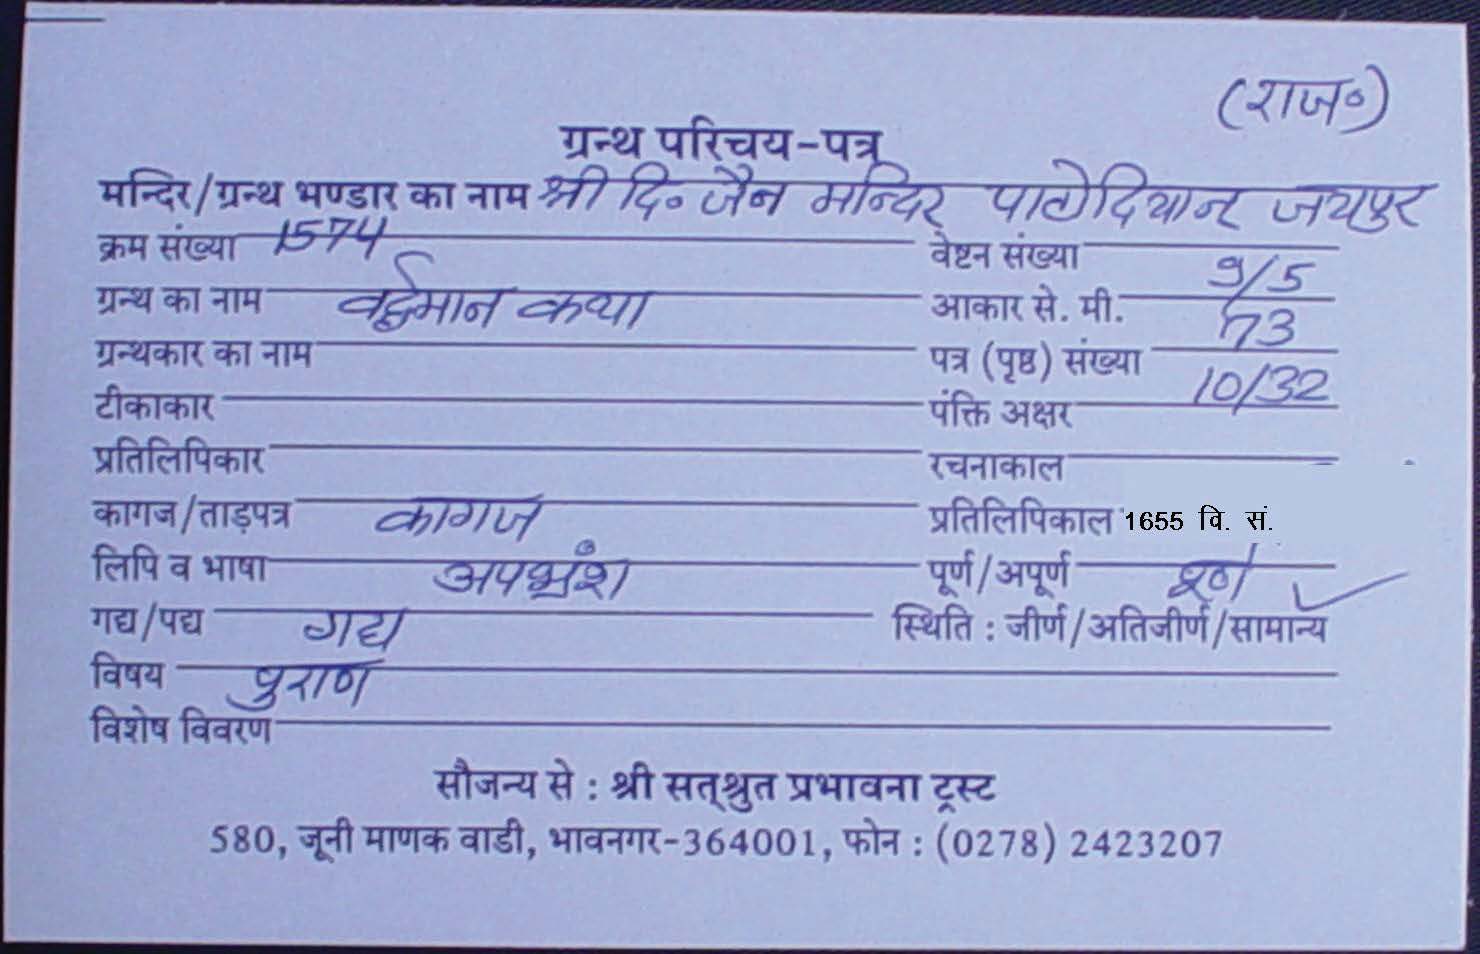 (राज॰)
ग्रन्थ परिचय-पत्र
मन्दिर/ग्रन्थ भण्डार का नाम श्री दि॰ जैन मन्दिर पाटोदियान जयपुर
क्रम संख्या 1574 वेष्टन संख्या
ग्रन्थ का नाम वर्द्धमान कथा आकार से. मी. 9/5
ग्रन्थकार का नाम पत्र (पृष्ठ) संख्या 73
टीकाकार पंक्ति अक्षर 10/32
प्रतिलिपिकार रचनाकाल
कागज/ताड़पत्र कागज प्रतिलिपिकाल 1655 वि. सं.
लिपि व भाषा अपभ्रंश पूर्ण/अपूर्ण पूर्ण
गद्य/पद्य गद्य स्थिति : जीर्ण/अतिजीर्ण/सामान्य
विषय पुराण
विशेष विवरण
सौजन्य से : श्री सत्श्रुत प्रभावना ट्रस्ट
580, जूनी माणक वाडी, भावनगर-364001, फोन : (0278) 2423207